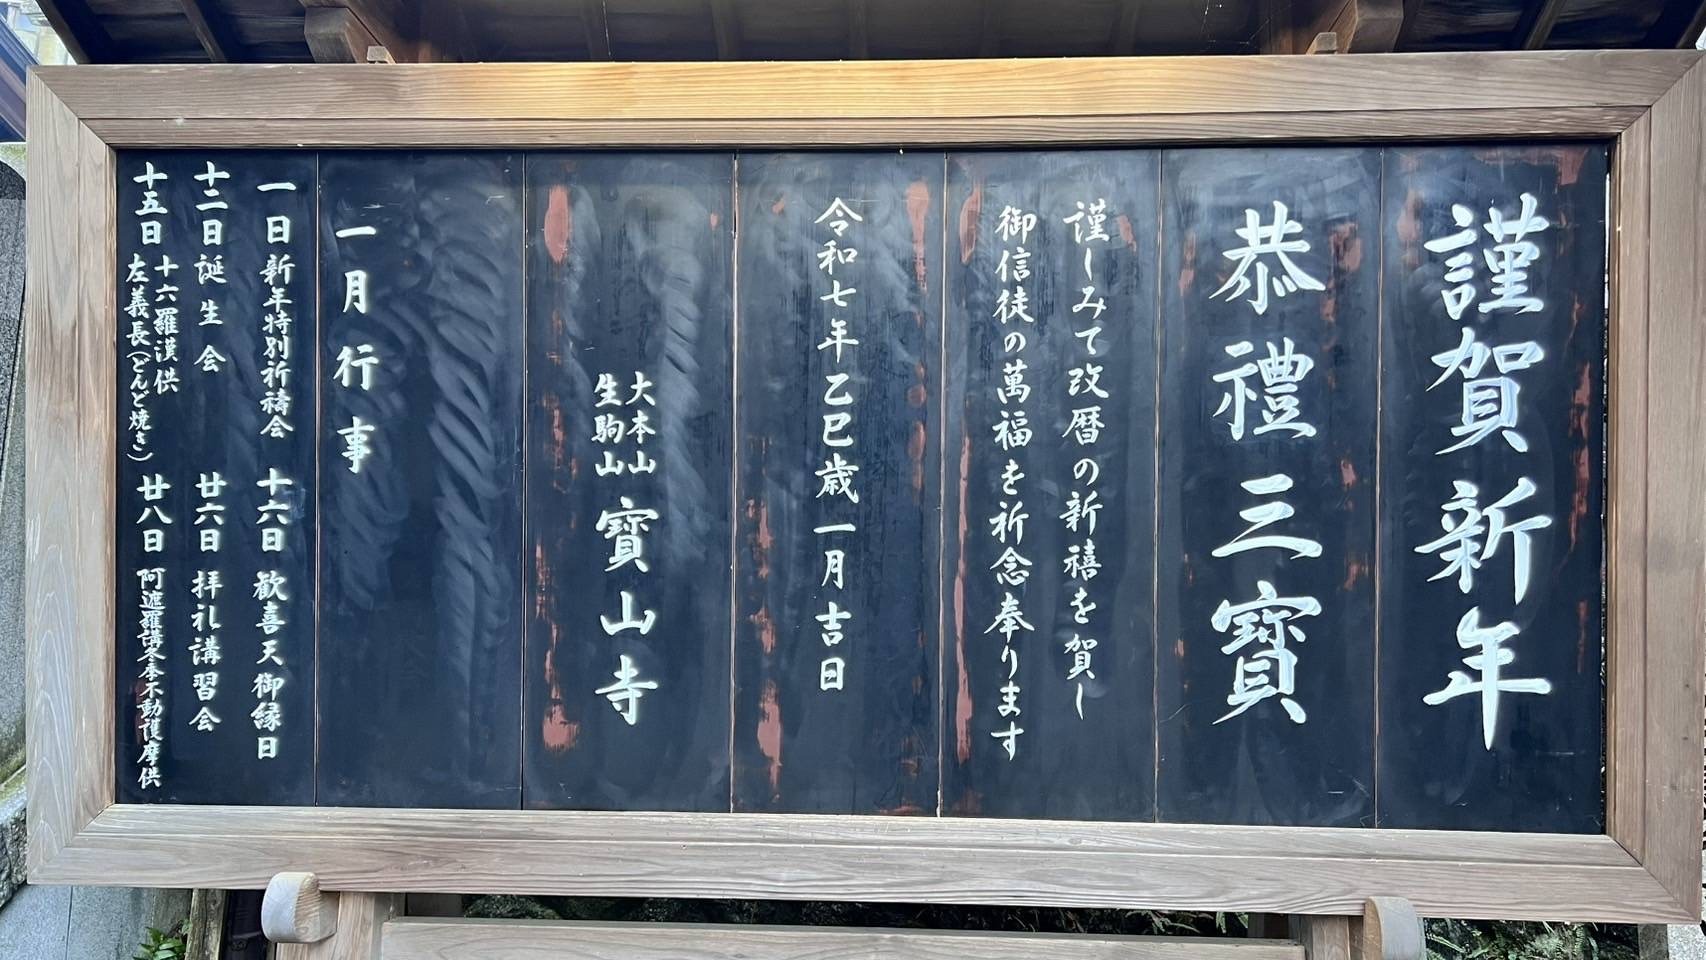 謹賀新年
恭禮三寶
謹しみて改暦の新禧を賀し
御信徒の萬福を祈念奉ります
令和七年乙巳歳一月吉日
大本山
生駒山
寶山寺
一月行事
一日 新年特別祈祷会
十二日 誕生会
十五日 十六羅漢供
左義長(どんど焼き)
十六日 歓喜天御縁日
廿六日 拝礼講習会
廿八日 阿遮羅講冬季不動護摩供